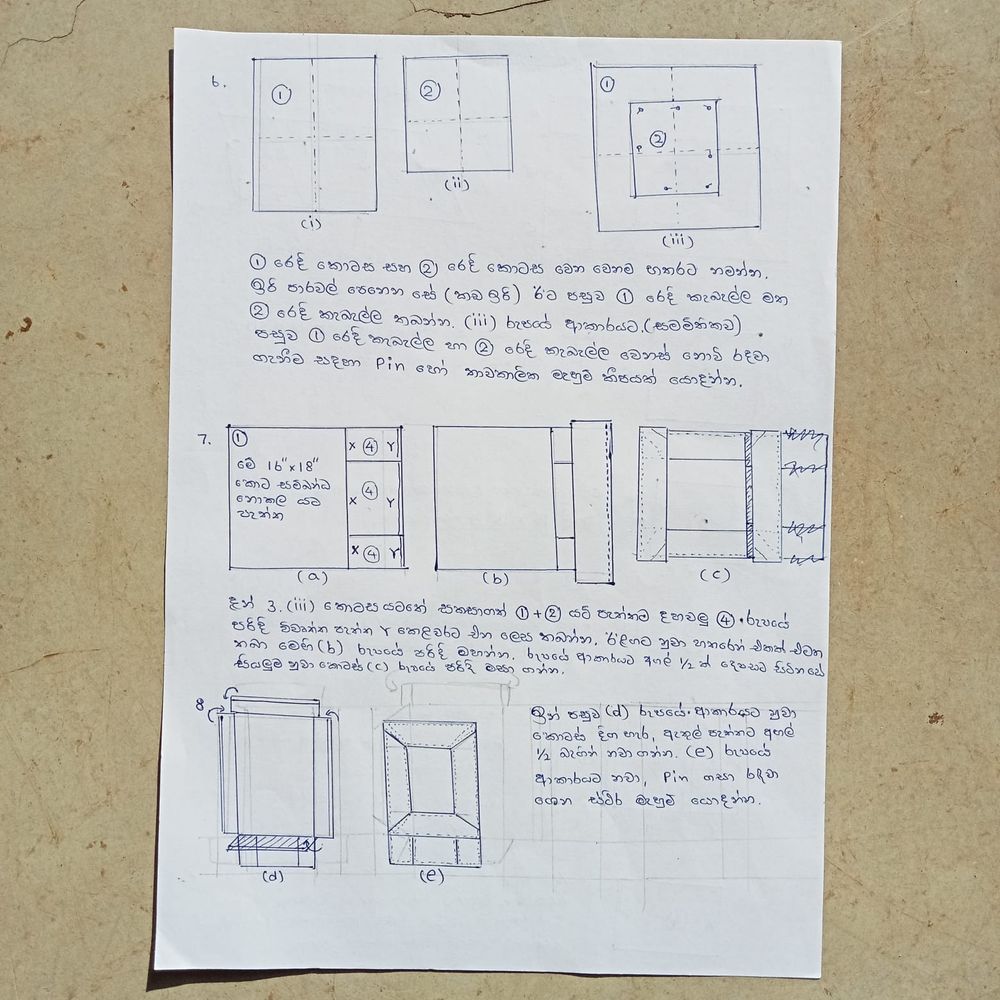 6.
① ② ①
②
(i) (ii) (iii)
① රෙදි කොටස සහ ② රෙදි කොටස වෙන වෙනම හතරට නමන්න.
ඉරි පාරවල් පෙනෙන සේ (කඩ ඉරි) ඊට පසුව ① රෙදි කැබැල්ල මත
② රෙදි කැබැල්ල තබන්න. (iii) රූපයේ ආකාරයට. (සමමිතිකව)
පසුව ① රෙදි කැබැල්ල හා ② රෙදි කැබැල්ල වෙනස් නොවී රඳවා
ගැනීම සඳහා Pin හෝ තාවකාලික මැහුම් කීපයක් යොදන්න.
7.
① X ④ Y
මේ 16"x18"
කොට සම්බන්ධ
නොකල යට
පැත්ත
X ④ Y
X ④ Y
(a) (b) (c)
දැන් 3. (iii) කොටස යටතේ සකසාගත් ①+② යටි පැත්තට දහවලු ④ රූපයේ
පරිදි විවෘත්ත පැත්ත Y කෙළවරට එන ලෙස තබන්න. ඊළඟට නුවා හතරෙන් එකක් එතන
තබා මෙහි (b) රූපයේ පරිදි මහන්න. රූපයේ ආකාරයට අඟල් ½ ක් දෙපසට සිටිනසේ
සියලුම නුවා කොටස් (c) රූපයේ පරිදි මසා ගන්න.
8
(d) (e)
ඉන් පසුව (d) රූපයේ ආකාරයට නුවා
කොටස් දිග හැර, ඇතුල් පැත්තට අඟල්
½ බැගින් නවා ගන්න. (e) රූපයේ
ආකාරයට නවා, Pin ගසා රඳවා
ගෙන ස්ථිර මැහුම් යොදන්න.